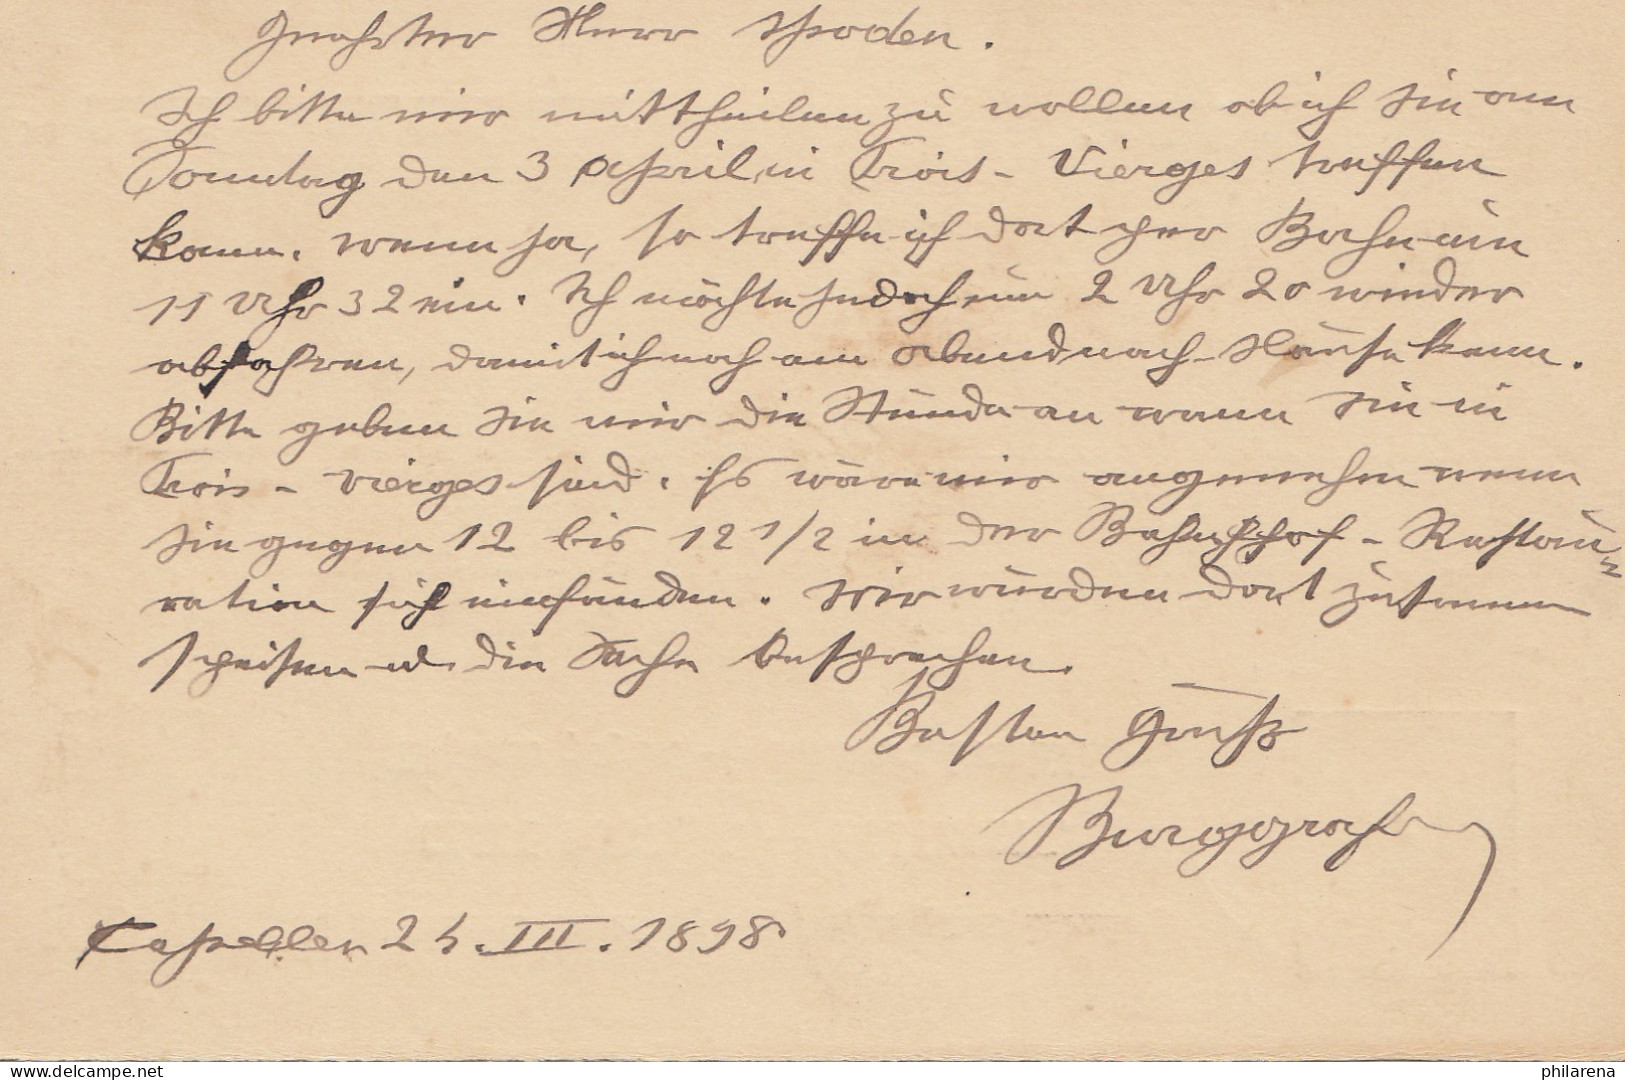 Geehrter Herr Spoden.
Ich bitte mir mittheilen zu wollen ob ich Sie am
Sonntag den 3 April in Trois-Vierges treffen
kann. wenn ja, so treffe ich dort per Bahn um
11 Uhr 32 ein. Ich möchte jedoch um 2 Uhr 20 wieder
abfahren, damit ich noch am abend nach Hause kann.
Bitte geben Sie mir die Stunde an wann Sie in
Trois-vierges sind. Es wäre mir angenehm wenn
Sie gegen 12 bis 12 1/2 in der Bahnhof-Restau-
ration sich einfänden. Wir würden dort zusammen
speisen u. die Sache besprechen.
Besten Gruß
Burggraf
Capellen 25.III.1898
www.delcampe.net
philarena